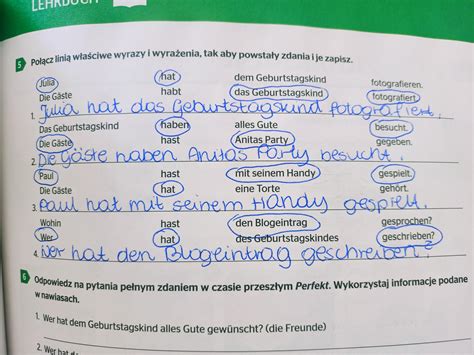 LEHRBUCH
5 Połącz linią właściwe wyrazy i wyrażenia, tak aby powstały zdania i je zapisz.
Julia hat dem Geburtstagskind fotografieren.
Die Gäste habt das Geburtstagskind fotografiert.
1. Julia hat das Geburtstagskind fotografiert.
Das Geburtstagskind haben alles Gute besucht.
Die Gäste hast Anitas Party gegeben.
2. Die Gäste haben Anitas Party besucht.
Paul hast mit seinem Handy gespielt.
Die Gäste hat eine Torte gehört.
3. Paul hat mit seinem HANDY gespielt.
Wohin hast den Blogeintrag gesprochen?
Wer hat des Geburtstagskindes geschrieben?
4. Wer hat den Blogeintrag geschrieben?
6 Odpowiedz na pytania pełnym zdaniem w czasie przeszłym Perfekt. Wykorzystaj informacje podane
w nawiasach.
1. Wer hat dem Geburtstagskind alles Gute gewünscht? (die Freunde)
2. Wer hat